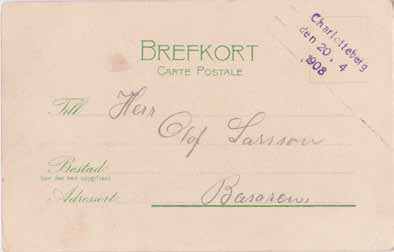 BREFKORT
CARTE POSTALE
Charlotteberg
den 20. 4
1908
Till Herr
Olof Larsson
Bostad:
(om den kan uppgifvas)
Adressort: Basaren